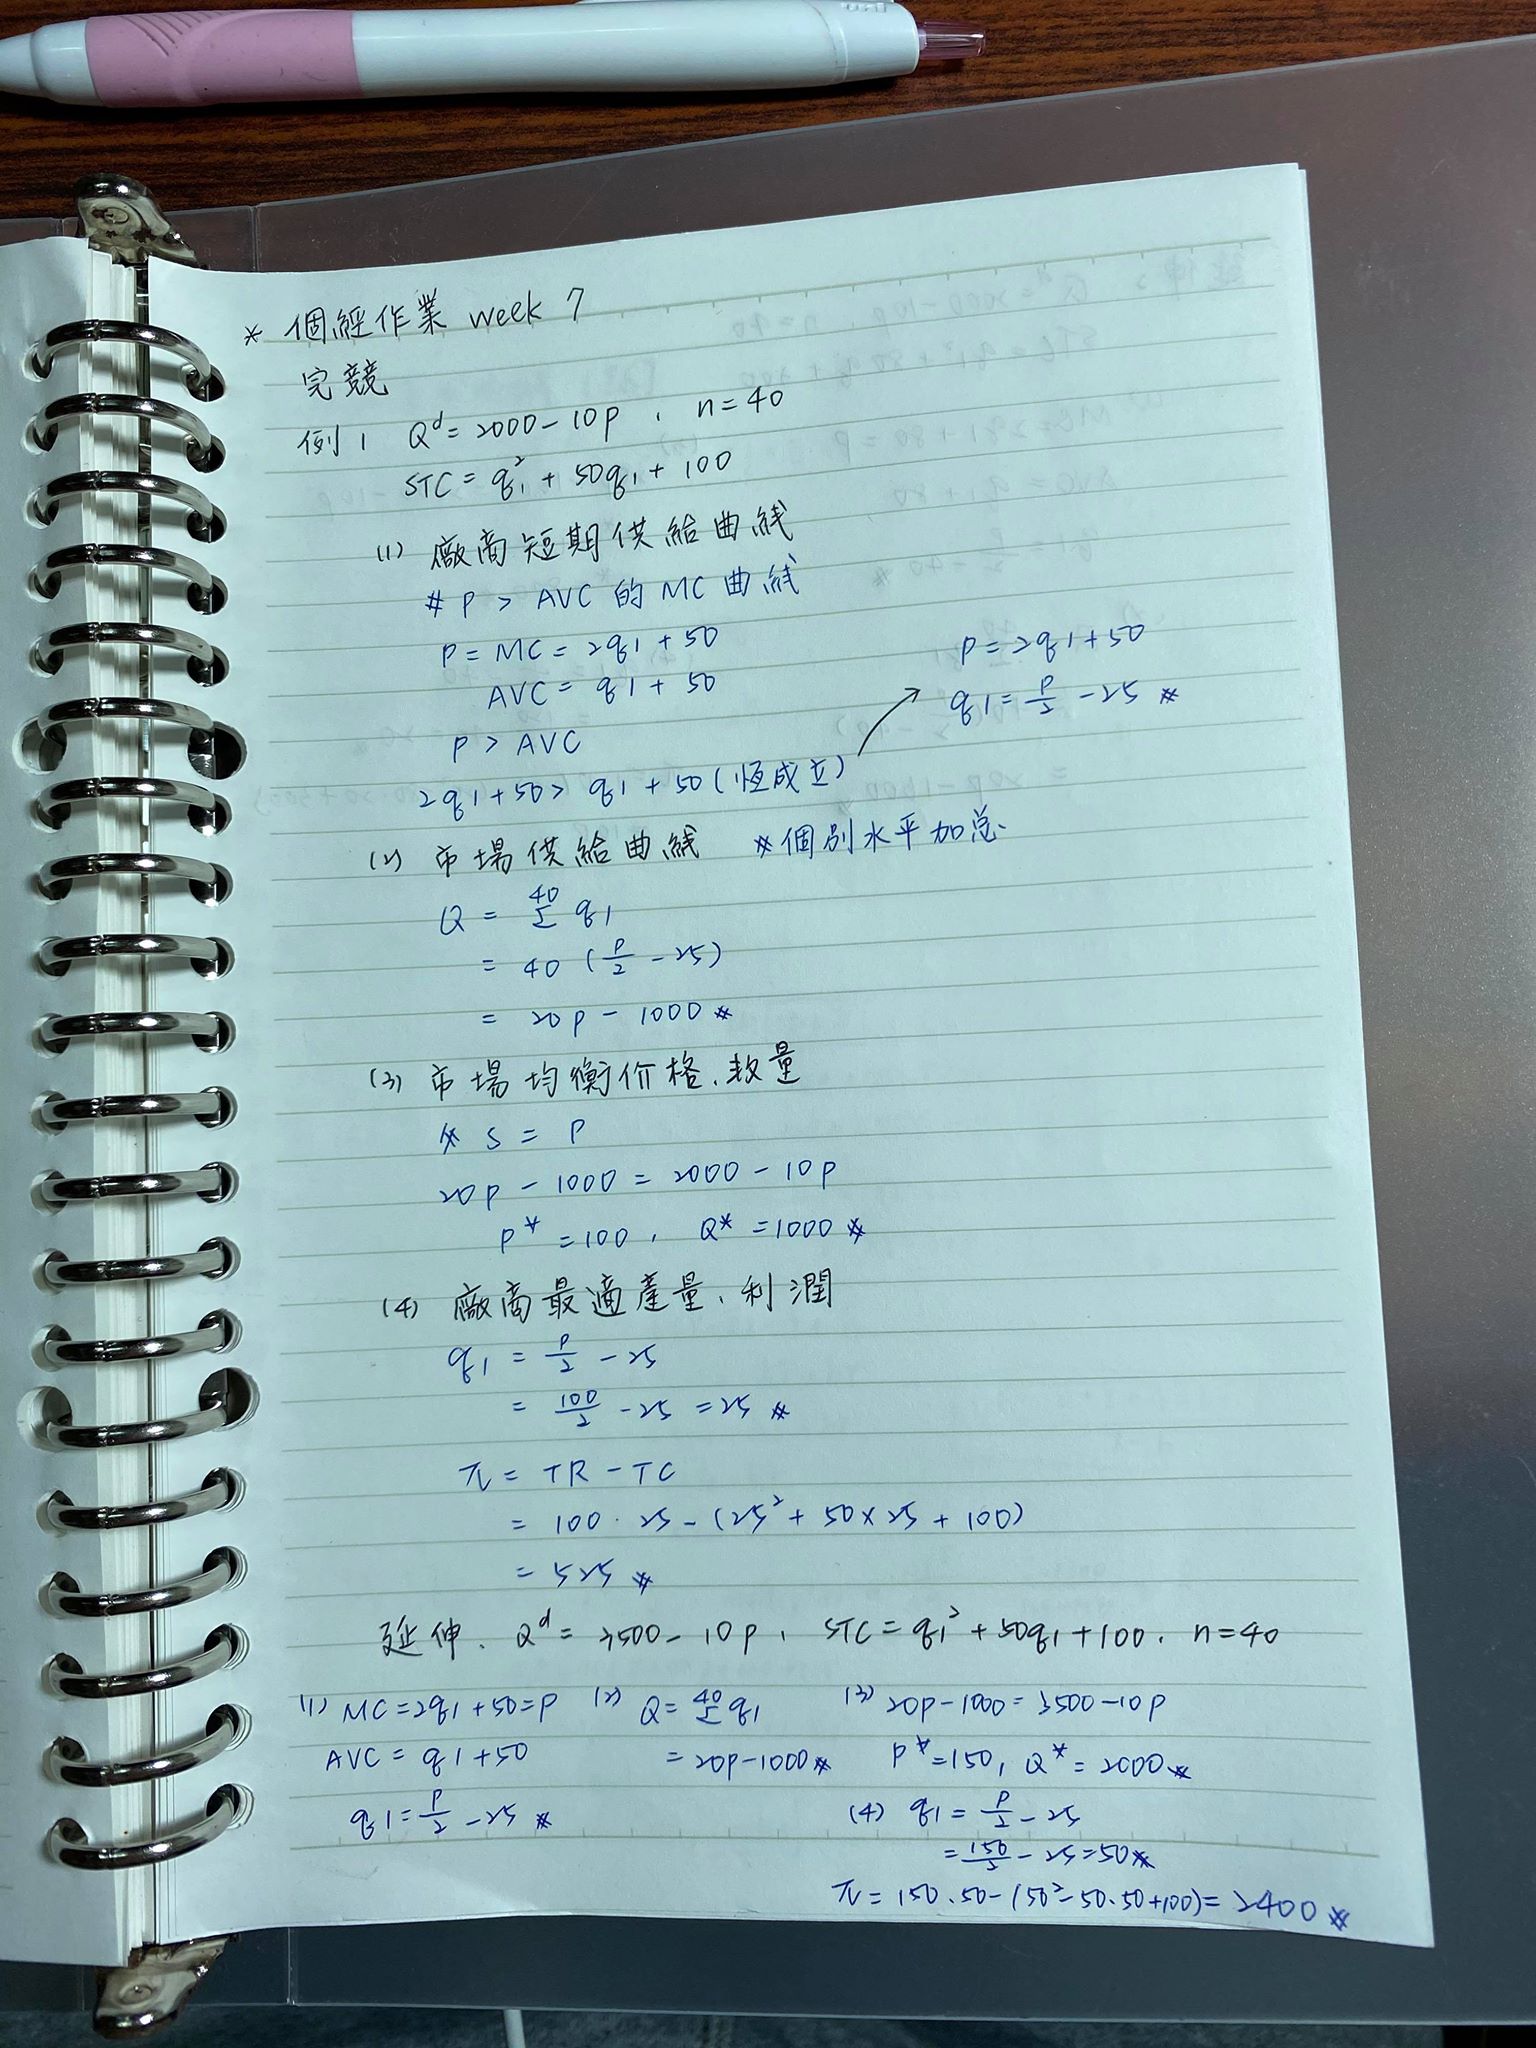 * 個經作業 week 7
完競
例1 Qᵈ = 2000 - 10p , n = 40
STC = q₁² + 50q₁ + 100
(1) 廠商短期供給曲線
# P > AVC 的 MC 曲線
P = MC = 2q1 + 50
AVC = q1 + 50
P > AVC
2q1 + 50 > q1 + 50 (恆成立)
P = 2q1 + 50
q1 = P/2 - 25 #
(2) 市場供給曲線 #個別水平加总
Q = ⁴⁰Σ q1
= 40 (P/2 - 25)
= 20p - 1000 #
(3) 市場均衡价格、数量
# S = P
20p - 1000 = 2000 - 10p
P* = 100 , Q* = 1000 #
(4) 廠商最適產量、利潤
q1 = P/2 - 25
= 100/2 - 25 = 25 #
π = TR - TC
= 100 · 25 - (25² + 50 × 25 + 100)
= 525 #
延伸、Qᵈ = 3500 - 10p , STC = q1² + 50q1 + 100 , n = 40
(1) MC = 2q1 + 50 = P
AVC = q1 + 50
q1 = P/2 - 25 #
(2) Q = ⁴⁰Σ q1
= 20p - 1000 #
(3) 20p - 1000 = 3500 - 10p
P* = 150 , Q* = 2000 #
(4) q1 = P/2 - 25
= 150/2 - 25 = 50 #
π = 150 · 50 - (50² - 50 · 50 + 100) = 2400 #